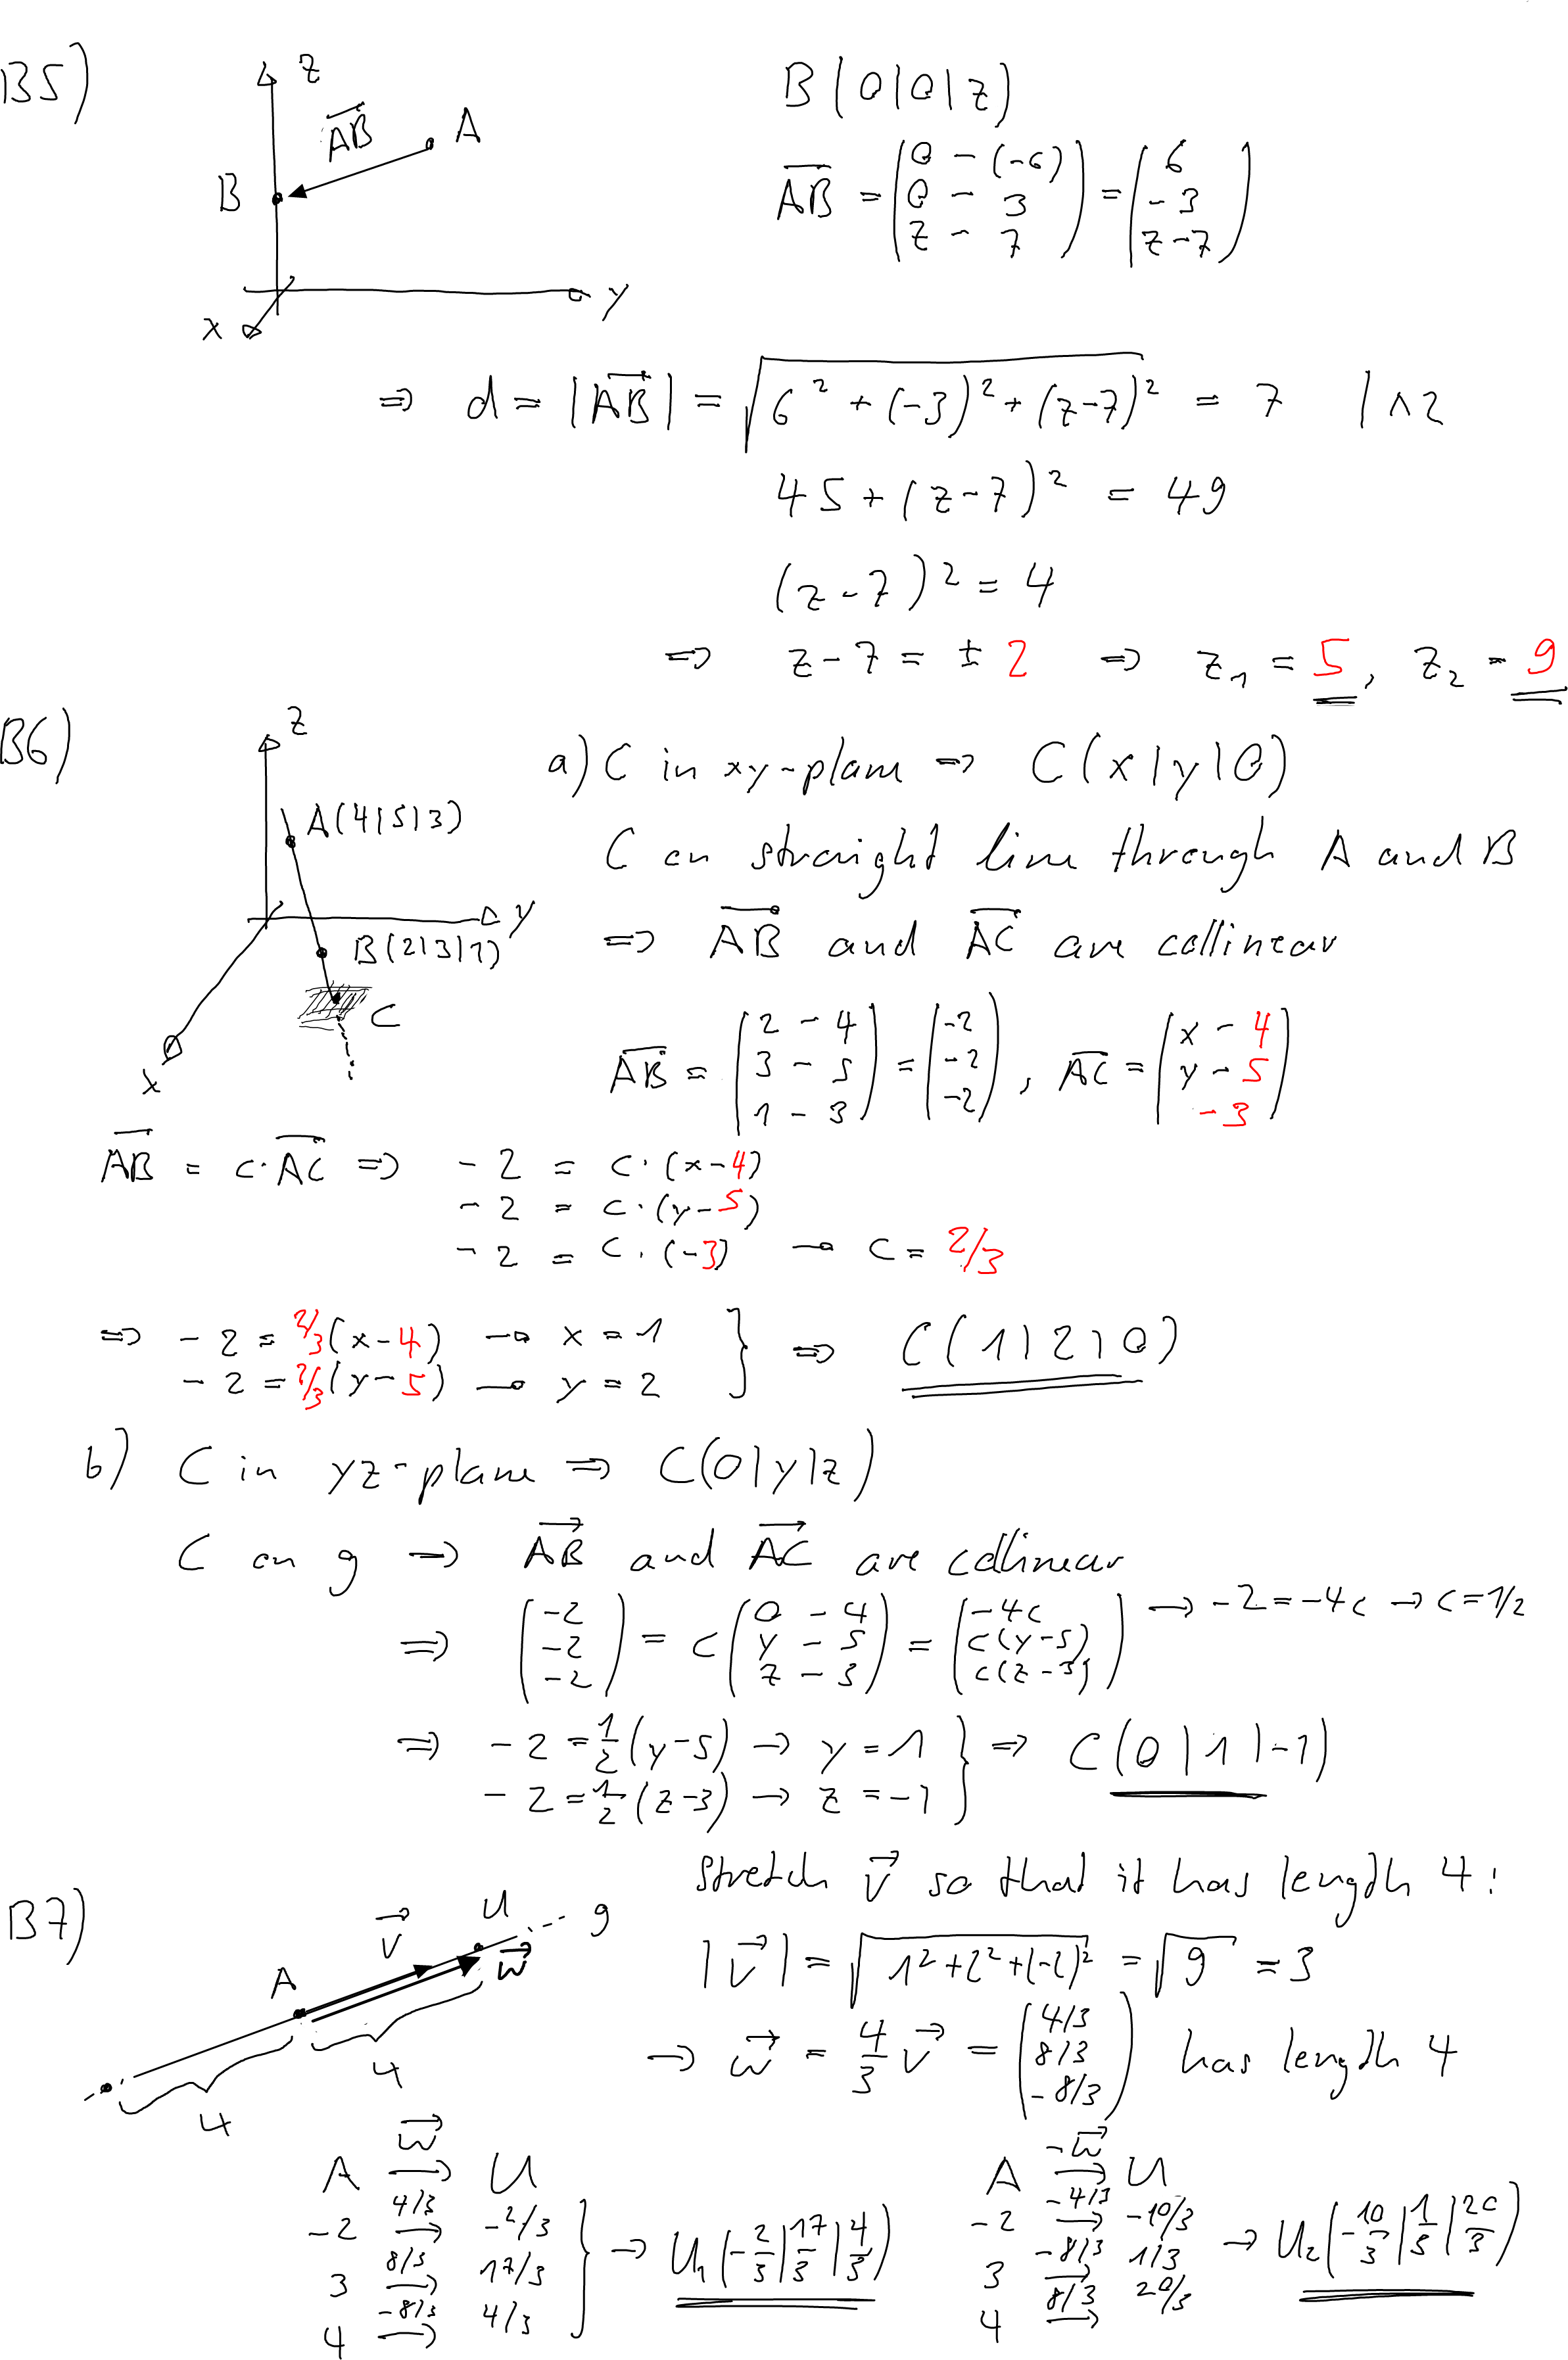 B5)
z
AB
A
B
y
x
B(0|0|z)
AB = (0 - (-6) / 0 - 3 / z - 7) = (6 / -3 / z-7)
⇒ d = |AB| = √(6² + (-3)² + (z-7)²) = 7 | ^2
45 + (z-7)² = 49
(z-7)² = 4
⇒ z-7 = ±2 ⇒ z₁ = 5, z₂ = 9
B6)
z
A(4|5|3)
y
B(2|3|1)
C
x
a) C in xy-plane ⇒ C(x|y|0)
C on straight line through A and B
⇒ AB and AC are collinear
AB = (2 - 4 / 3 - 5 / 1 - 3) = (-2 / -2 / -2), AC = (x - 4 / y - 5 / -3)
AB = c·AC ⇒ -2 = c·(x-4)
-2 = c·(y-5)
-2 = c·(-3) → c = 2/3
⇒ -2 = 2/3(x-4) → x = 1
-2 = 2/3(y-5) → y = 2 } ⇒ C(1|2|0)
b) C in yz-plane ⇒ C(0|y|z)
C on g ⇒ AB and AC are collinear
⇒ (-2 / -2 / -2) = c(0 - 4 / y - 5 / z - 3) = (-4c / c(y-5) / c(z-3)) → -2 = -4c → c = 1/2
⇒ -2 = 1/2(y-5) → y = 1
-2 = 1/2(z-3) → z = -1 } ⇒ C(0|1|-1)
B7)
A
v
U
w
g
4
4
stretch v so that it has length 4:
|v| = √(1²+2²+(-2)²) = √9 = 3
→ w = 4/3 v = (4/3 / 8/3 / -8/3) has length 4
A w→ U
-2 4/3→ -2/3
3 8/3→ 17/3
4 -8/3→ 4/3
} → U₁(-2/3|17/3|4/3)
A -w→ U
-2 -4/3→ -10/3
3 -8/3→ 1/3
4 8/3→ 20/3
→ U₂(-10/3|1/3|20/3)